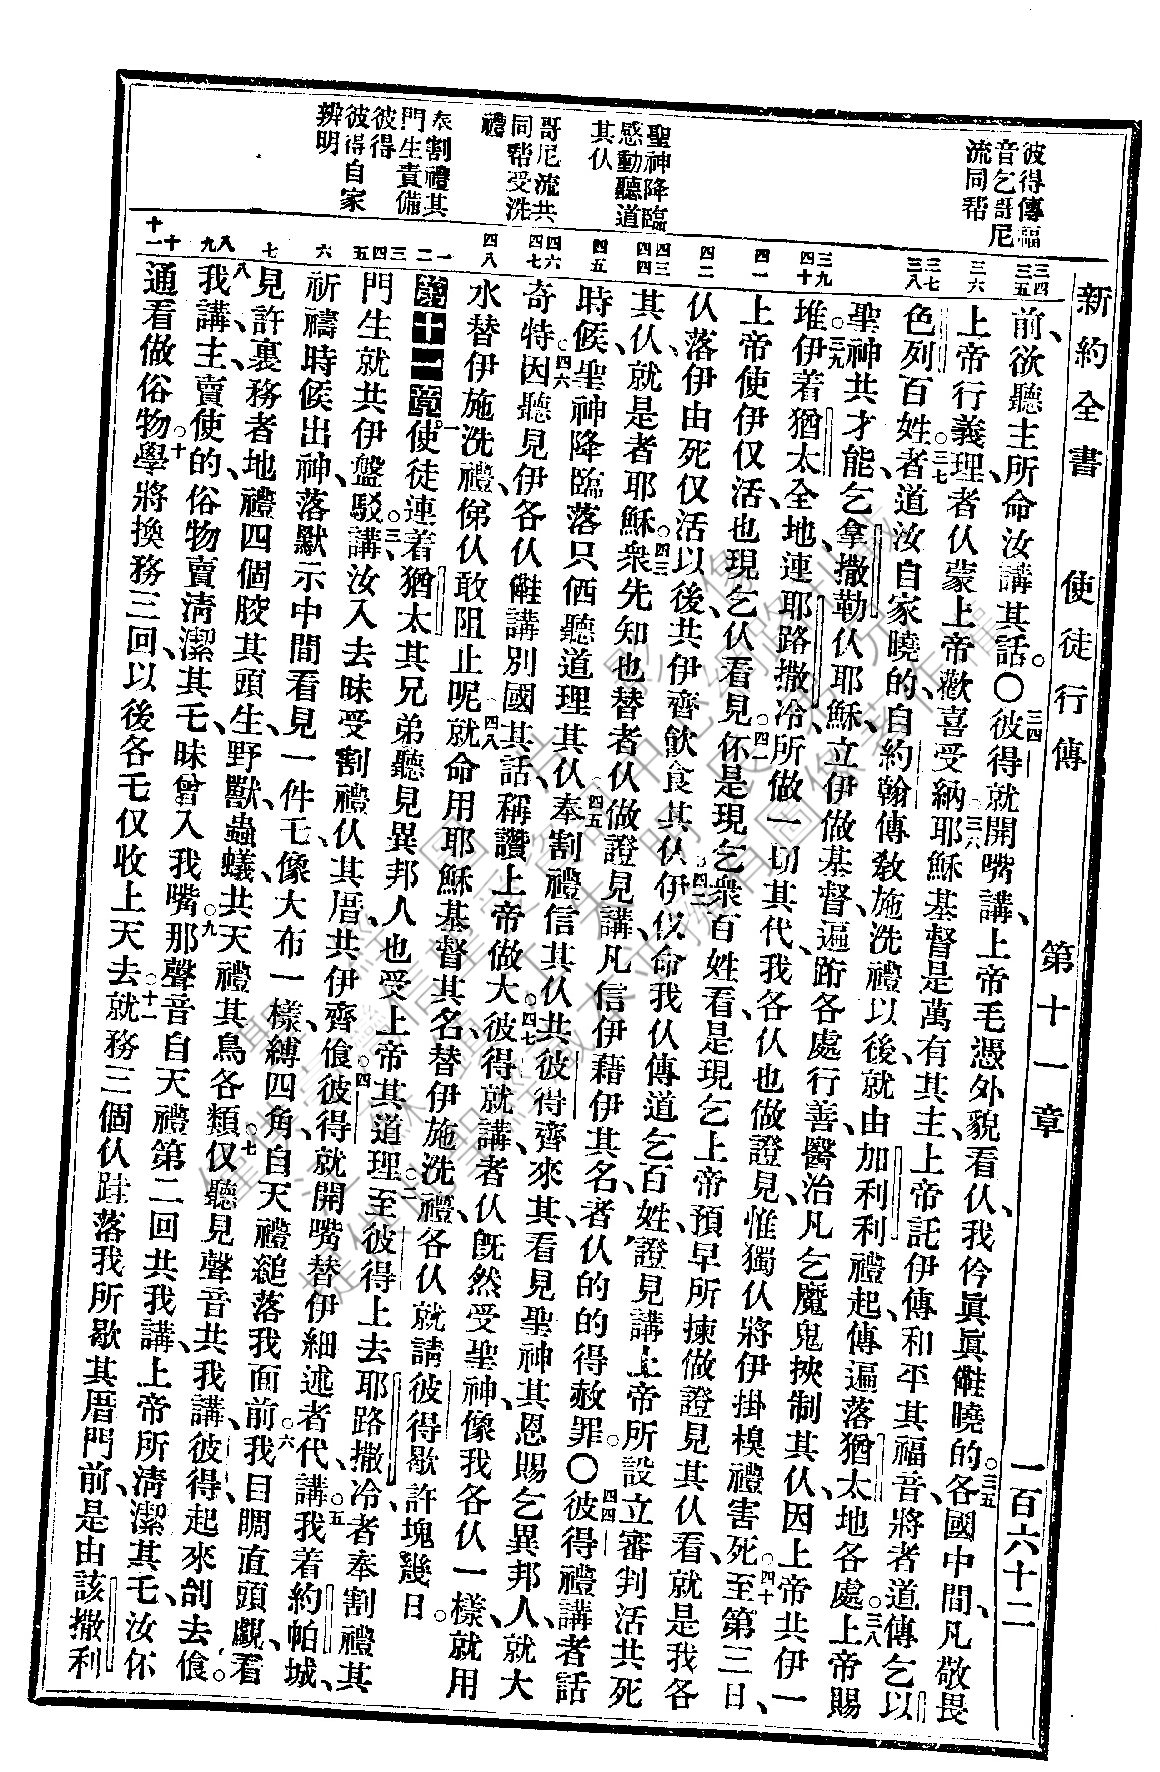 新約全書　使徒行傳　第十一章　一百六十二
彼得傳福
音乞哥尼
流同幇
聖神降臨
感動聽道
其仈
哥尼流共
同幇受洗
禮
奉割禮其
門生責備
彼得
彼得自家
辨明
三四
三五
三六
三七
三八
三九
四十
四一
四二
四三
四四
四五
四六
四七
四八
一
二
三
四
五
六
七
八
九
十
十一
前欲聽主所命汝講其話。〇三四彼得就開嘴講、上帝毛憑外貌看仈、我仱眞眞𠆧曉的。三五各國中間、凡敬畏
上帝行義理者仈蒙上帝歡喜受納。三六耶穌基督是萬有其主、上帝託伊傳和平其福音、將者道傳乞以
色列百姓。三七者道汝自家曉的、自約翰傳教施洗禮以後、就由加利利禮起傳遍落猶太地各處。三八上帝賜
聖神共才能乞拿撒勒仈耶穌、立伊做基督、遍跡各處行善、醫治凡乞魔鬼挾制其仈、因上帝共伊一
堆。三九伊着猶太全地連耶路撒冷、所做一切其代、我各仈也做證見、惟獨仈將伊掛槼禮害死。四十至第三日、
上帝使伊仅活、也現乞仈看見。四一伓是現乞衆百姓看、是現乞上帝預早所揀做證見其仈看、就是我各
仈、落伊由死仅活以後、共伊齊飲食其仈。四二伊仫命我仈傳道乞百姓、證見講上帝所設立審判活共死
其仈、就是者耶穌。四三衆先知也替者仈做證見、講凡信伊藉伊其名、者仈的的得赦罪。〇四四彼得禮講者話
時候、聖神降臨落只㑚聽道理其仈。四五奉割禮信其仈、共彼得齊來其、看見聖神其恩賜乞異邦人、就大
奇特。四六因聽見伊各仈𠆧講別國其話、稱讚上帝做大。四七彼得就講、者仈旣然受聖神、像我各仈一樣、就用
水替伊施洗禮、俤仈敢阻止呢。四八就命用耶穌基督其名替伊施洗禮、各仈就請彼得歇許塊幾日。
第十一章一使徒連着猶太其兄弟、聽見異邦人也受上帝其道理。二至彼得上去耶路撒冷、者奉割禮其
門生就共伊盤駁。三講、汝入去昧受割禮仈其厝、共伊齊飡。四彼得就開嘴替伊細述者代、講。五我着約帕城、
祈禱時候出神、落默示中間看見一件乇、像大布一樣、縛四角、自天禮縋落我面前。六我目瞯直頭覷、看
見許裏務者地禮四個骹其頭生、野獸、蟲蟻、共天禮其鳥各類。七仅聽見聲音共我講、彼得起來、刣去飡。
八我講、主、賣使的、俗物賣淸潔其乇昧曾入我嘴。九那聲音自天禮第二回共我講、上帝所淸潔其乇、汝伓
通看做俗物。十學將換務三回、以後各乇仅收上天去。十一就務三個仈、跬落我所歇其厝門前、是由該撒利